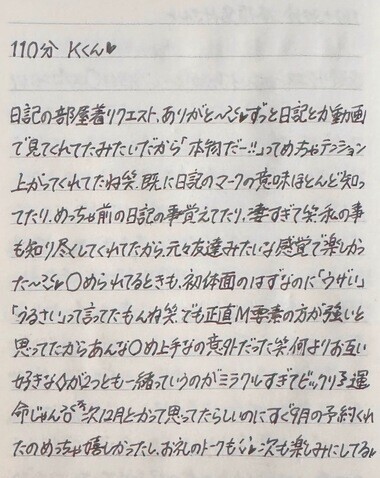 110分 Kくん♥
日記の部屋着リクエスト、ありがと〜♥ずっと日記とか動画
で見てくれてたみたいだから「本物だー!!」ってめちゃテンション
上がってくれてたね笑、既に日記のマークの意味ほとんど知っ
てたり、めっちゃ前の日記の事覚えてたり、凄すぎて笑、私の事
も知り尽くしてくれてたから、元々友達みたいな感覚で楽しかっ
た〜♥〇められてるときも、初体面のはずなのに「ウザい」
「うるさい」って言ってたもんね笑、でも正直M要素の方が強いと
思ってたからあんな〇め上手なの意外だった笑、何よりお互い
好きな◇が2つとも一緒っていうのがミラクルすぎてビックリ 運
命じゃん 次12月とかって思ってたらしいのにすぐ9月の予約くれ
たのめっちゃ嬉しかったし、お礼のトークも 次も楽しみにしてる♥